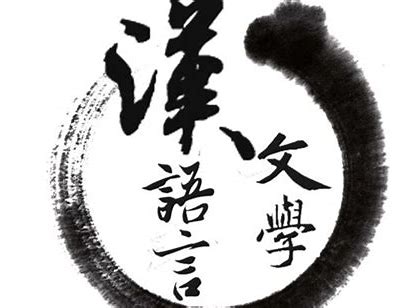 漢語言
文學